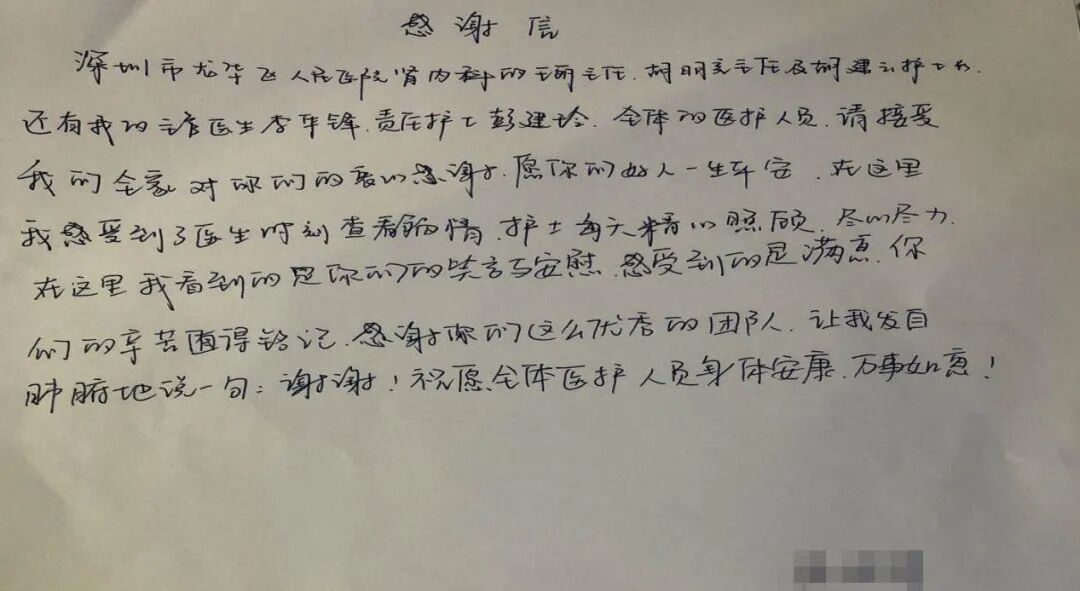 感谢信
深圳市龙华区人民医院肾内科的王主任.胡朋主任及胡建云护士长.
还有我的主管医生李年锋.责任护士彭建玲.全体的医护人员.请接受
我们全家对你们的衷心感谢.愿你们好人一生平安.在这里
我感受到了医生时刻查看病情.护士每天精心照顾.尽心尽力.
在这里我看到的是你们的笑言与安慰.感受到的是满意.你
们的辛苦值得铭记.感谢你们这么优秀的团队.让我发自
肺腑地说一句:谢谢!祝愿全体医护人员身体安康.万事如意!